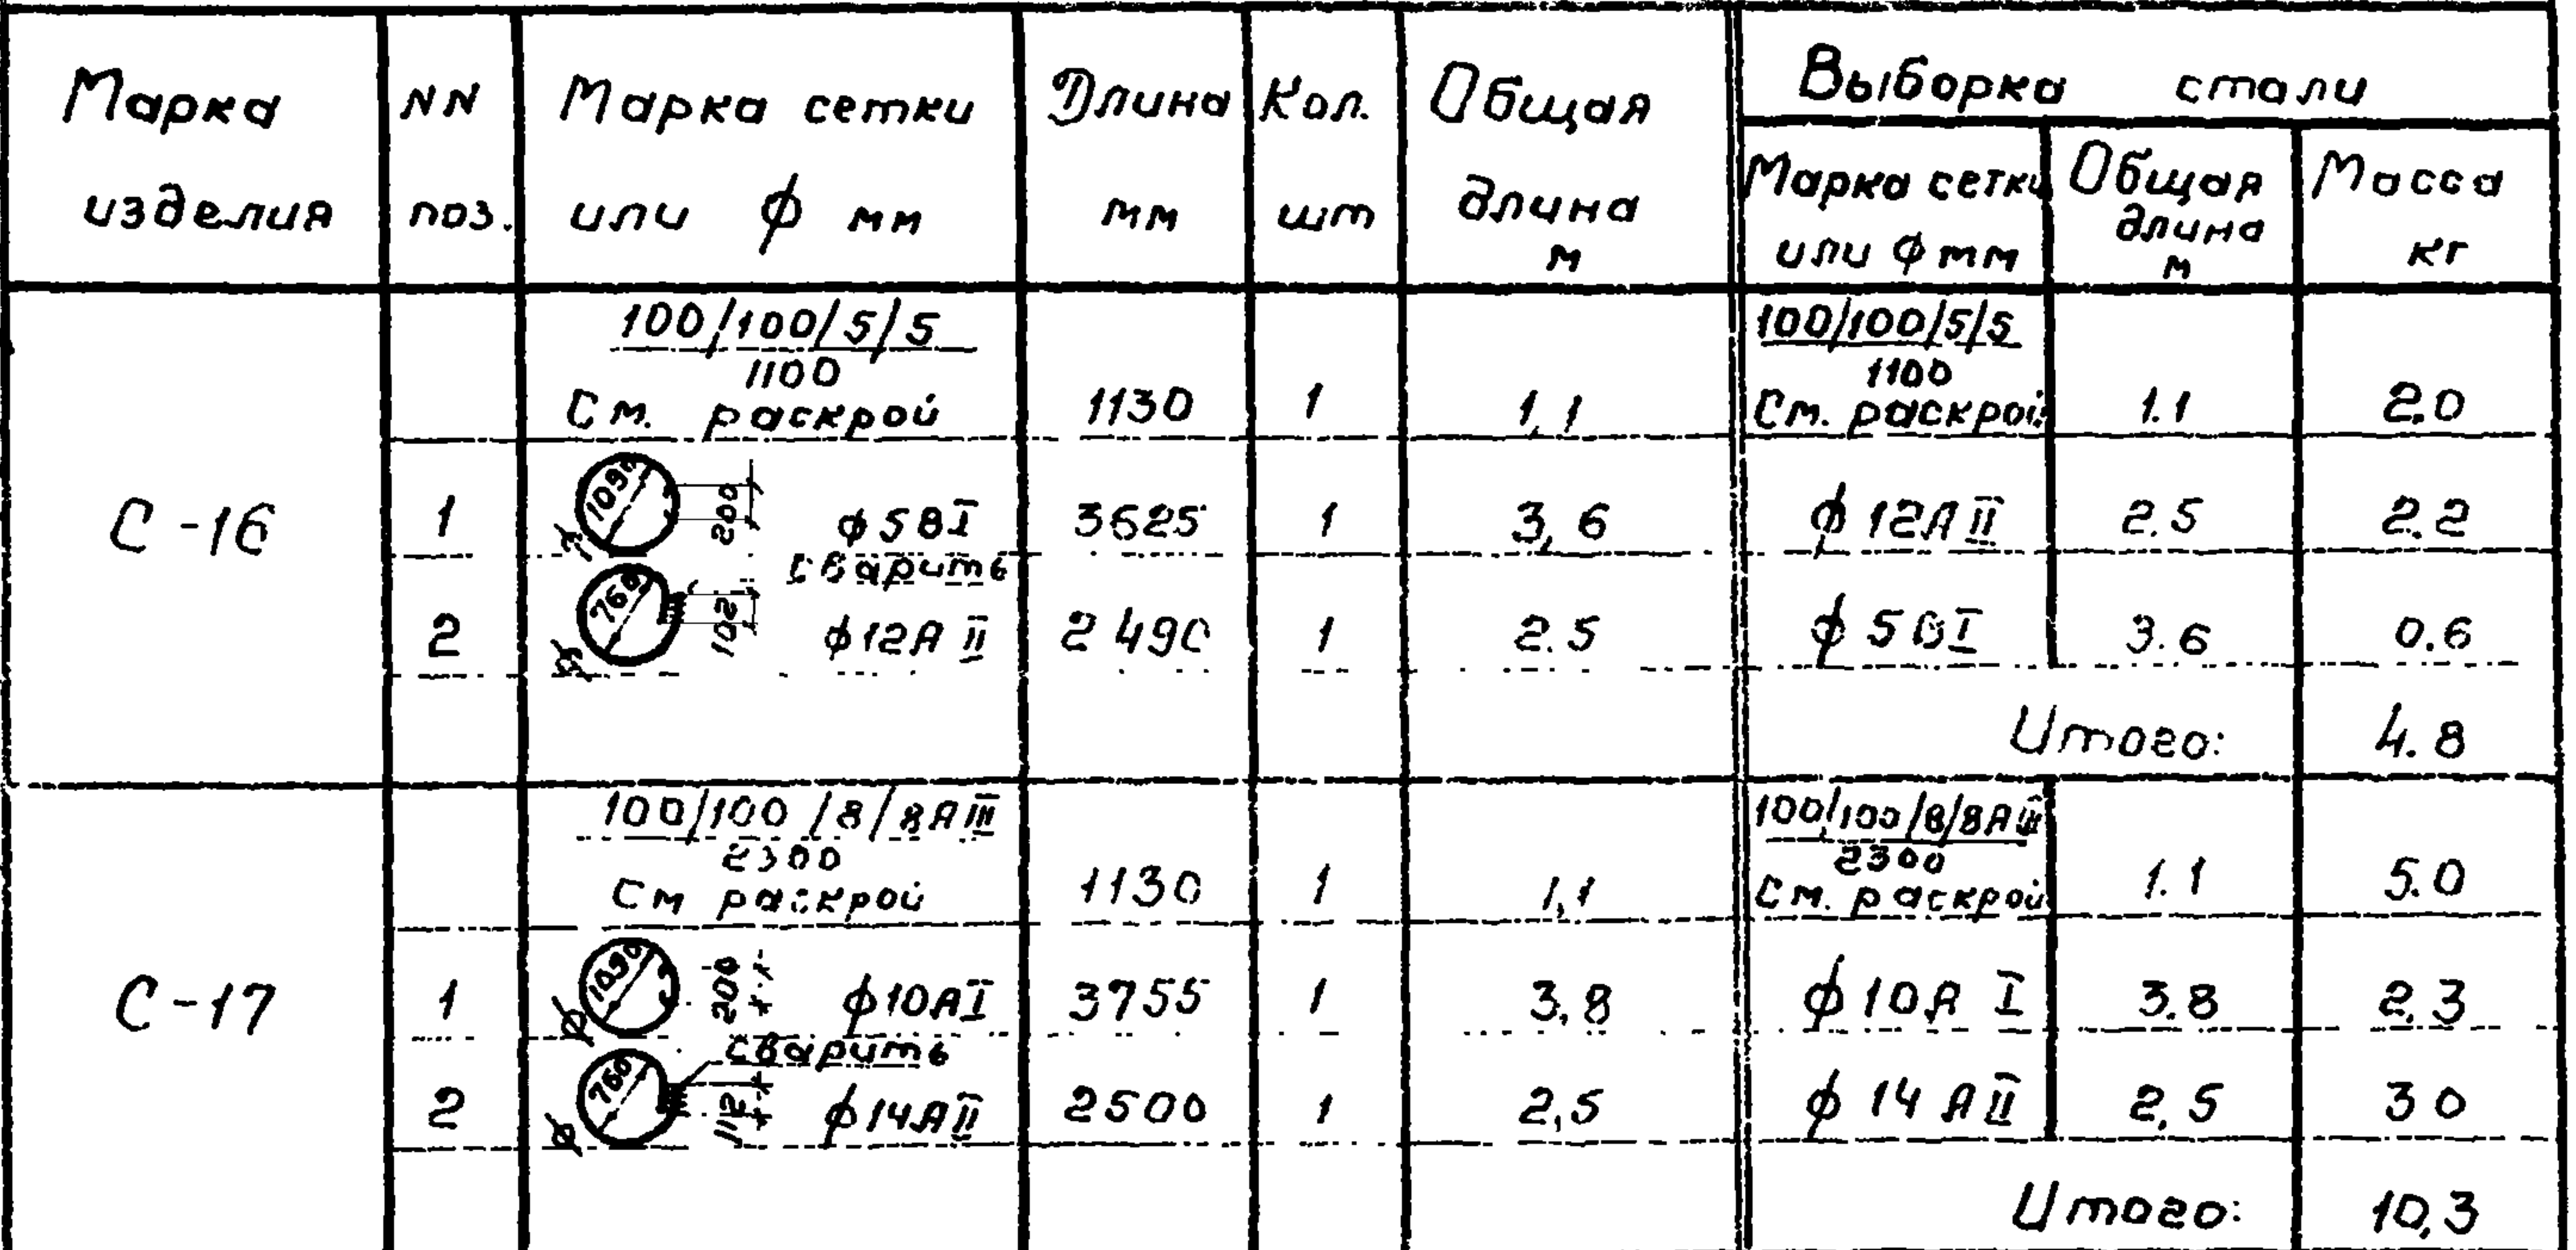 Марка изделия
NN поз.
Марка сетки или ϕ мм
Длина мм
Кол. шт
Общая длина м
Выборка стали
Марка сетки или ϕ мм
Общая длина м
Масса кг
С-16
100/100/5/5
1100
См. раскрой 1130 1 1,1
100/100/5/5
1100
См. раскрой 1.1 2.0
1 1090 200 ϕ5ВI 3625 1 3,6 ϕ12АII 2.5 2.2
сварить
2 760 102 ϕ12АII 2490 1 2.5 ϕ5ВI 3.6 0.6
Итого: 4.8
С-17
100/100/8/8АIII
2300
См раскрой 1130 1 1,1
100/100/8/8АIII
2300
См. раскрой 1.1 5.0
1 1090 200 ϕ10АI 3755 1 3,8 ϕ10АI 3.8 2,3
сварить
2 760 112 ϕ14АII 2500 1 2,5 ϕ14АII 2,5 30
Итого: 10,3